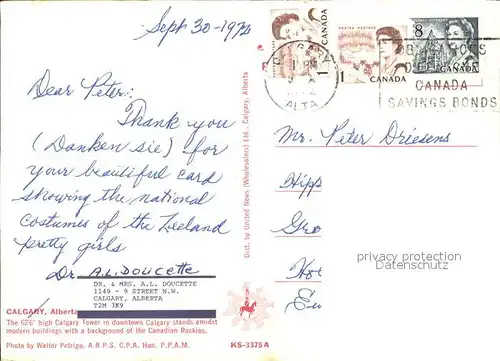 Sept 30-1972
Dear Peter:
Thank you
(Danken sie) for
your beautiful card
showing the national
costumes of the Zeeland
pretty girls
Dr. A.L. DOUCETTE
DR. & MRS. A.L. DOUCETTE
1149 - 9 STREET N.W.
CALGARY, ALBERTA
T2M 3K9
CALGARY, Alberta
The 626' high Calgary Tower in downtown Calgary stands amidst
modern buildings with a background of the Canadian Rockies.
Photo by Walter Petrigo, A.R.P.S. C.P.A. Hon. P.P.A.M.
Dist. by United News (Wholesalers) Ltd., Calgary, Alberta
KS-3375A
CANADA
1
POSTES POSTAGE
1
CANADA
8
CANADA
CALGARY
ALTA
CANADA
SAVINGS BONDS
Mr. Peter Driesens
Hipp
Gro
Eu
privacy protection
watermark